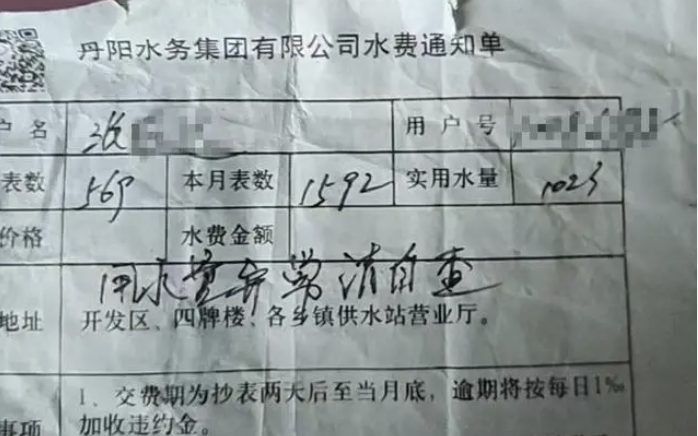 丹阳水务集团有限公司水费通知单
户名 用户号
表数 569 本月表数 1592 实用水量 1023
价格 水费金额
用水量异常请自查
地址 开发区、四牌楼、各乡镇供水站营业厅。
1、交费期为抄表两天后至当月底，逾期将按每日1‰
事项 加收违约金。